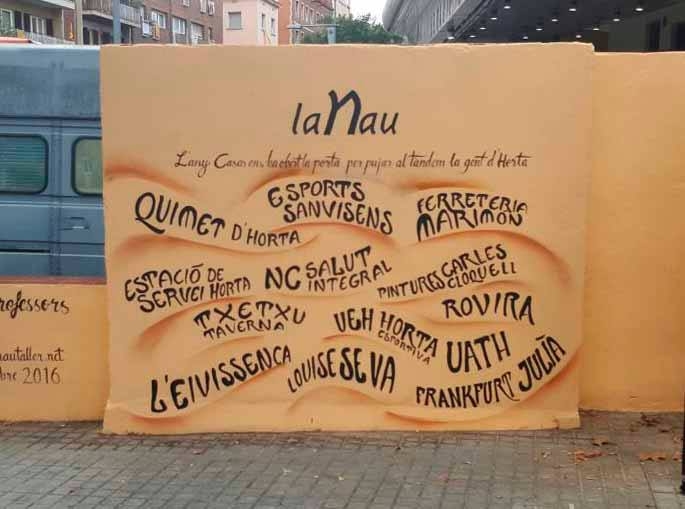 laNau
L'any Casas ens ha obert la porta per pujar al tandem la gent d'Horta
QUIMET D'HORTA
ESPORTS
SANVISENS
FERRETERIA
MARIMON
ESTACIÓ DE
SERVEI HORTA
NC SALUT
INTEGRAL
PINTURES CARLES
CLOQUELL
TXETXU
TAVERNA
UEH HORTA
ESPORTIVA
ROVIRA
L'EIVISSENCA
LOUISE SEVA
UATH
FRANKFURT JULIÀ
rofessors
nautaller.net
bre 2016